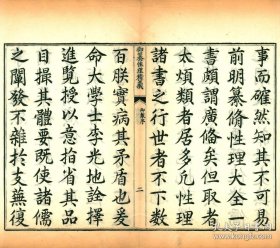 事而確然知其不可易
前明纂脩性理大全一
書頗謂廣備矣但取者
太煩類者居多凡性理
諸書之行世者不下數
御纂性理精義
序
二
百朕實病其矛盾也爰
命大學士李光地詮擇
進覽授以意指省其品
目撮其體要既使諸儒
之闡發不雜於支蕪復